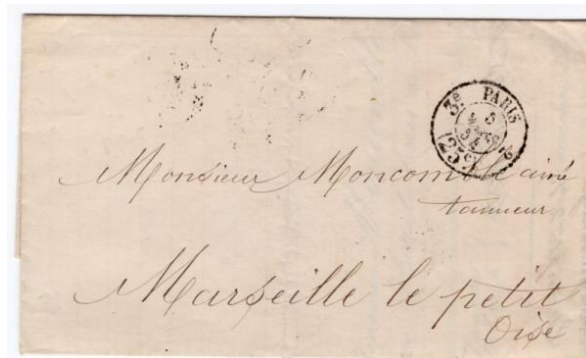 3e PARIS
Monsieur Moncomble ainé
tanneur
Marseille le petit
Oise